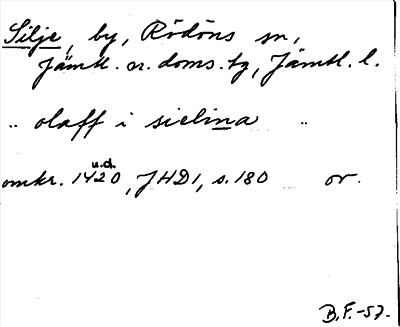 Silje, by, Rödöns sn,
Jämtl. n. doms. tg, Jämtl. l.
.. olaff i sielina ..
u.d.
omkr. 1420, JHD1, s. 180 or.
B.F.-57.